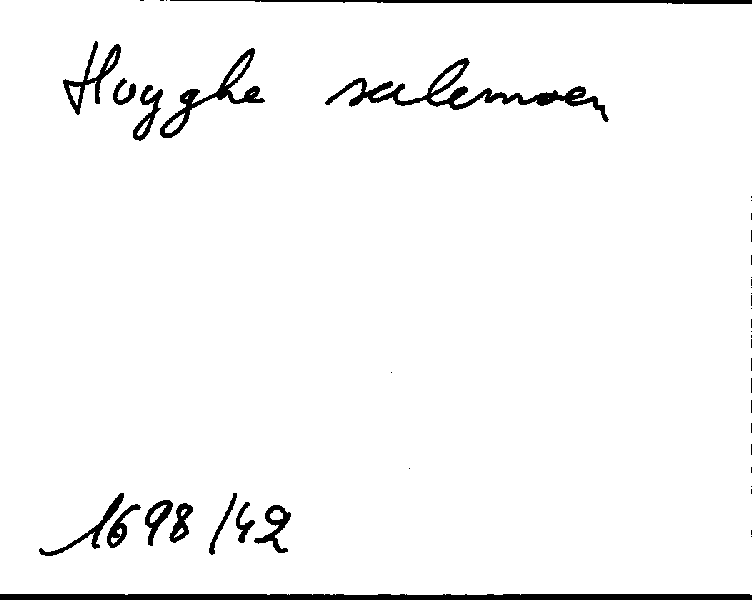 Huyghe salemoen
1698/42